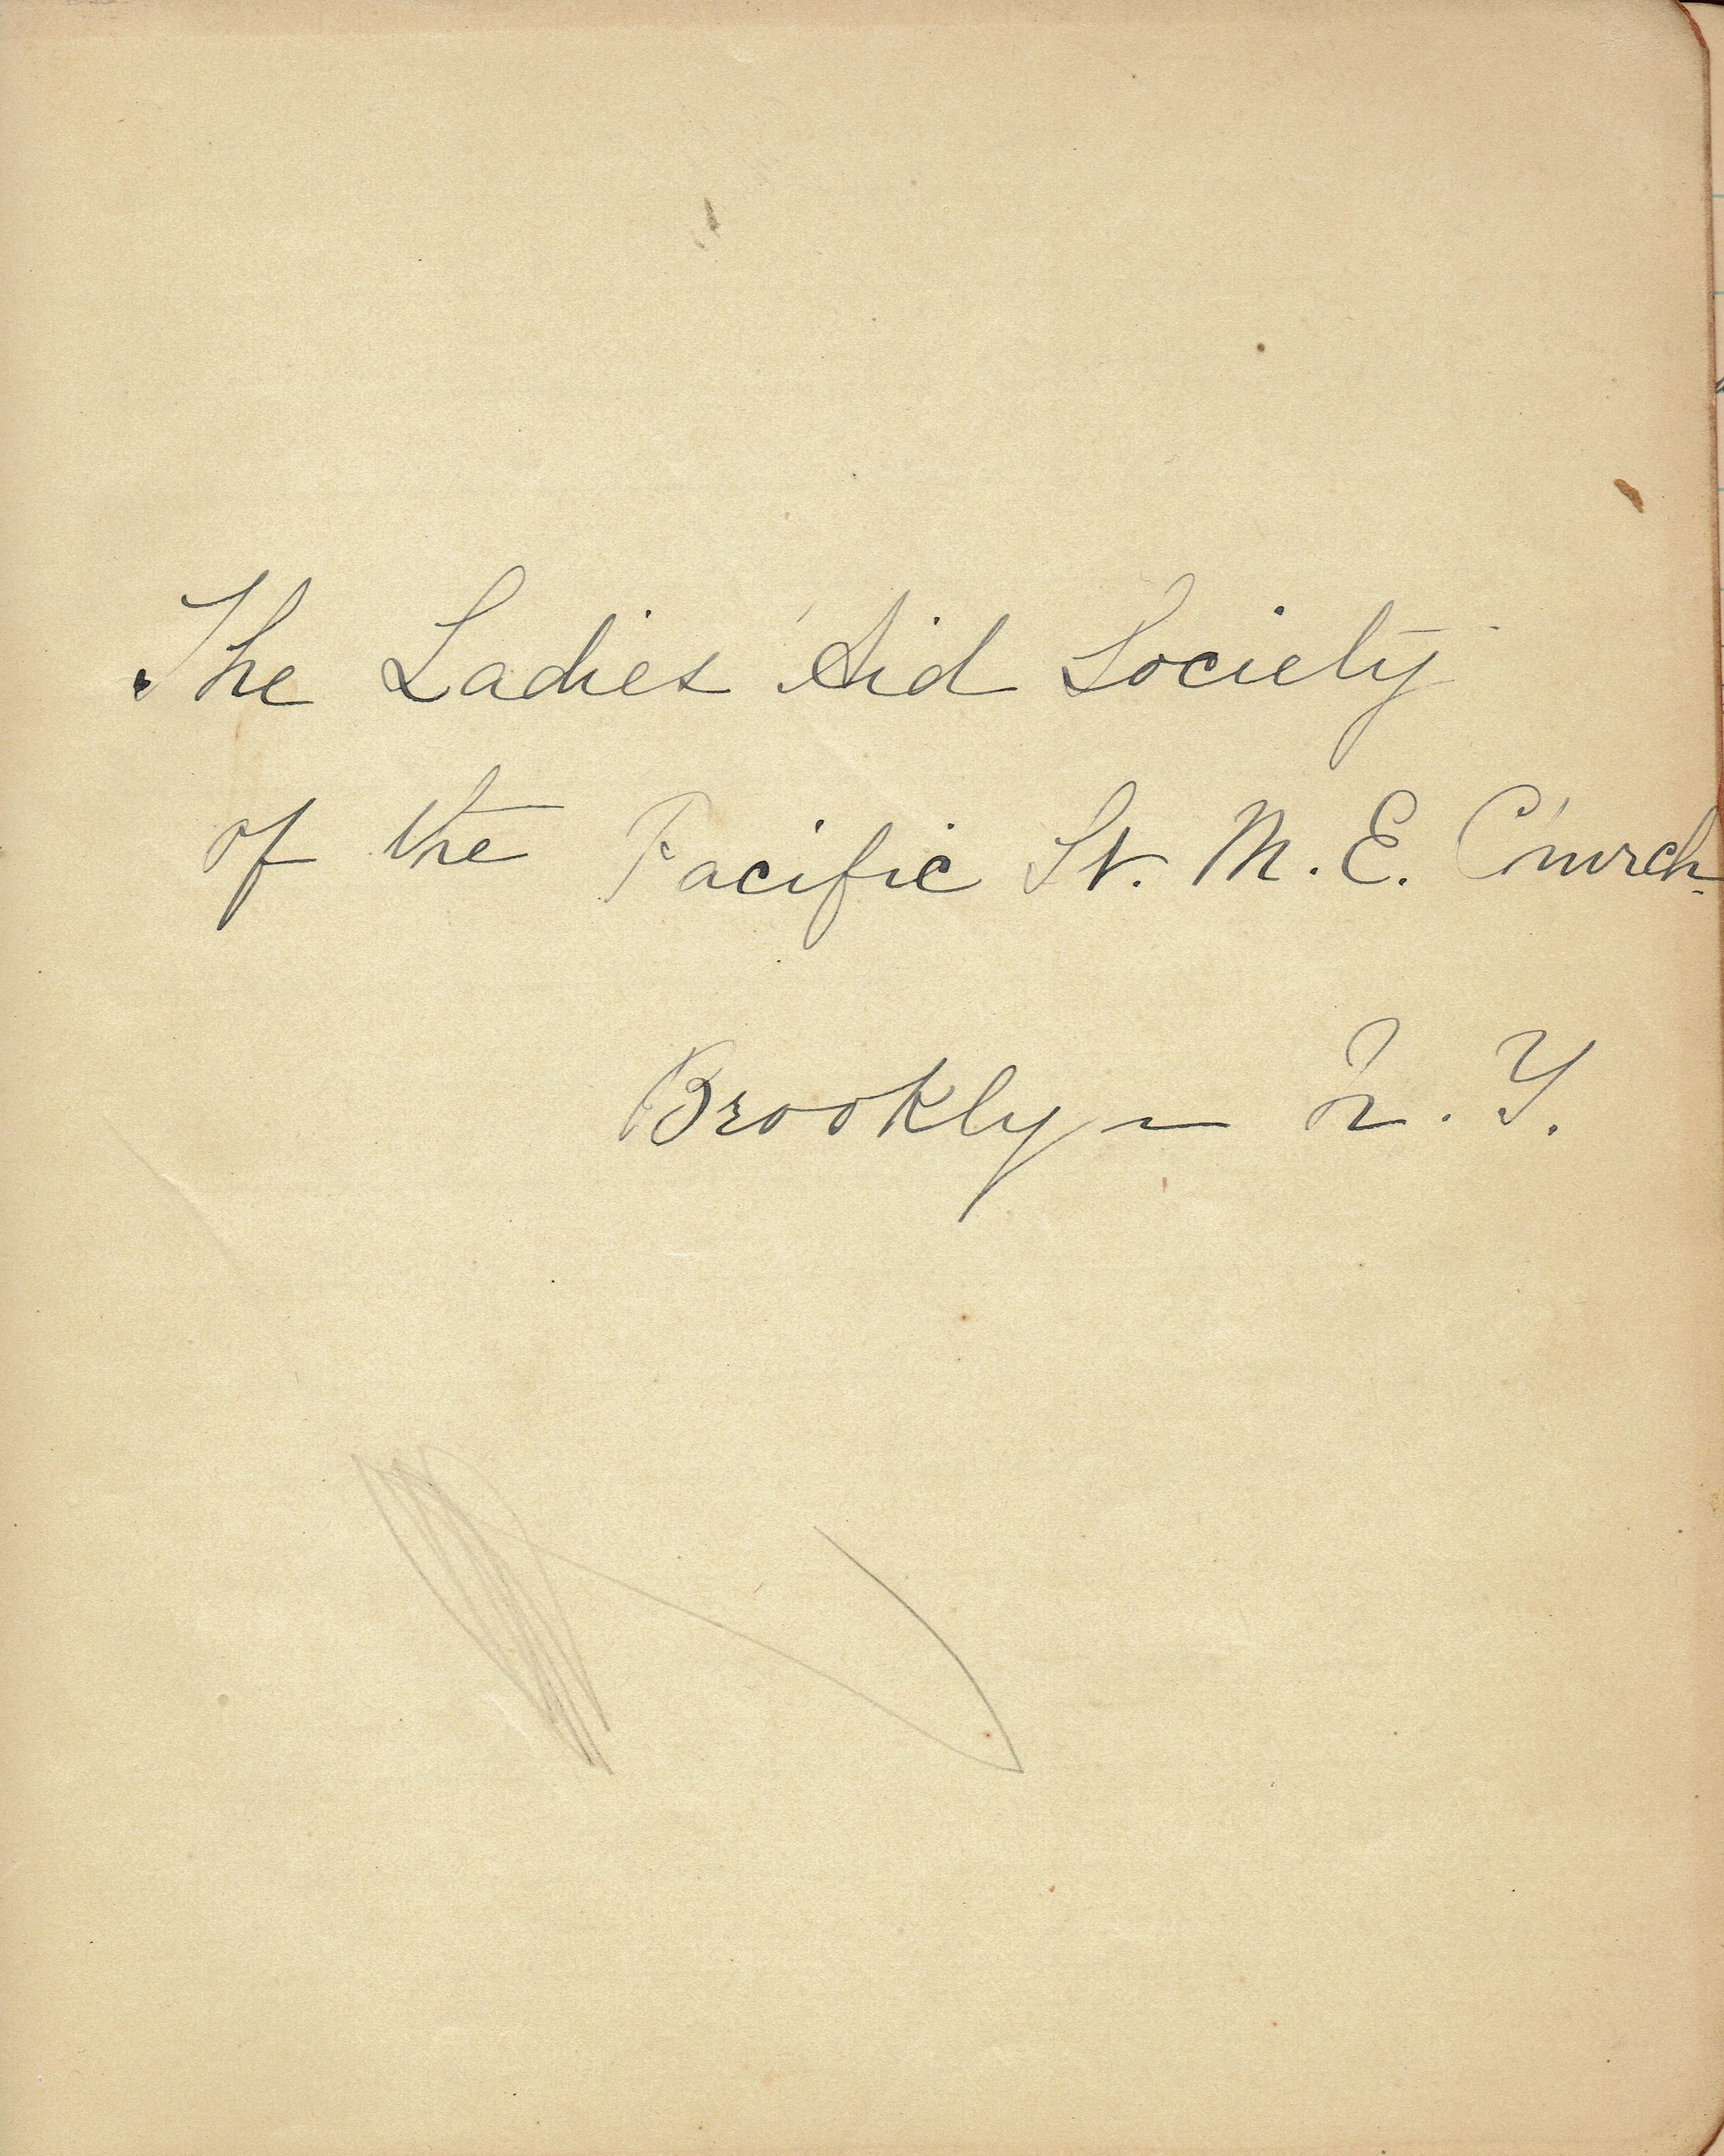 The Ladies' Aid Society
of the Pacific St. M. E. Church
Brooklyn N. Y.